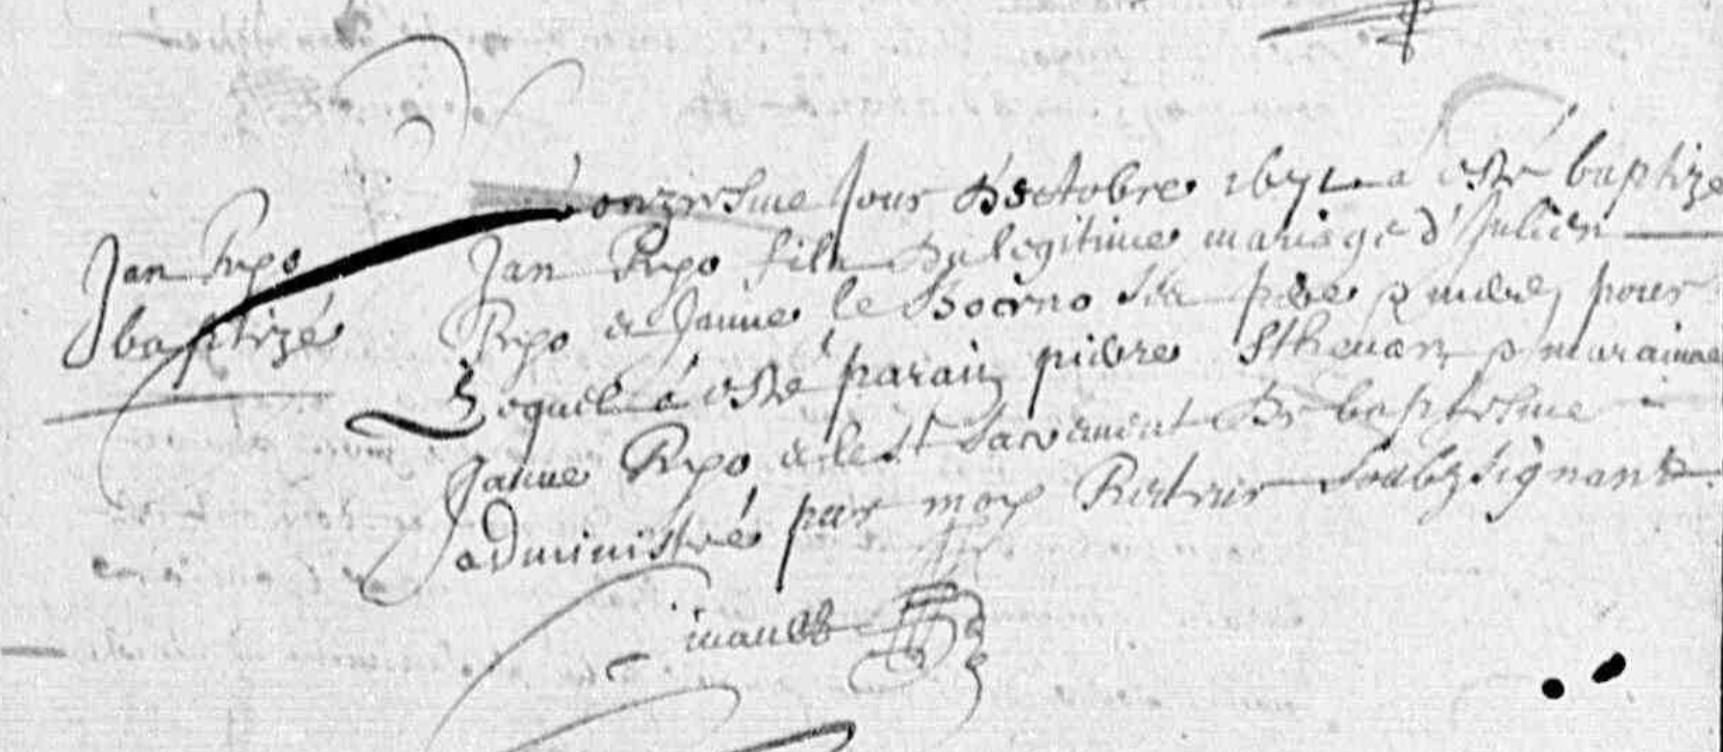 Jan Rypo
baptizé
onziesme jour d'octobre 1671 a esté baptizé
Jan Rypo fils du legitime mariage d'Julien
Rypo et Janne le ses pere & mere, pour
Lequel a esté parain pierre Sthevan & maraine
Janne Rypo, et le St Sacrement de baptesme
administré par moy Recteur soubzsignant